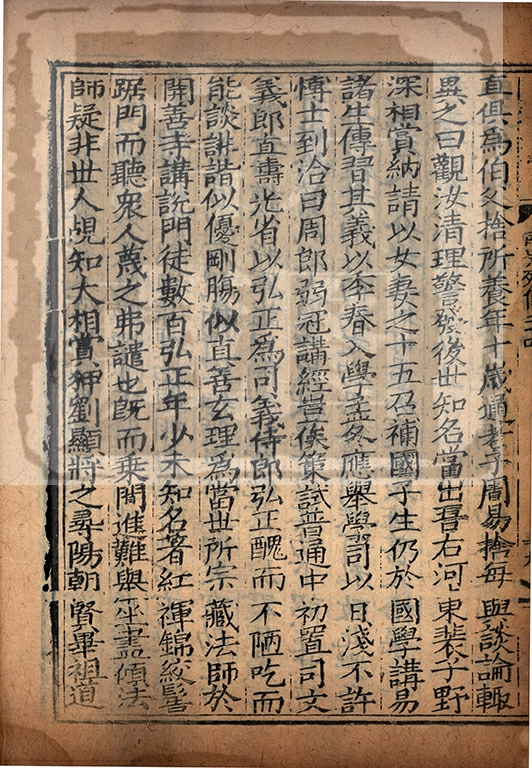 直俱爲伯父捨所養年十歲通老子周易捨每與談論輙
異之曰觀汝清理警發後世知名當出吾右河東裴子野
深相賞納請以女妻之十五召補國子生仍於國學講易
諸生傳習其義以季春入學孟冬應舉學司以日淺不許
愽士到洽曰周郎弱冠講經豈俟策試普通中初置司文
義郎直壽光省以弘正爲司義侍郎弘正醜而不陋吃而
能談誹諧似優剛腸似直善玄理爲當世所宗藏法師於
開善寺講說門徒數百弘正年少未知名著紅褌錦絞髻
踞門而聽衆人蔑之弗譴也旣而乗間進難舉坐盡傾法
師疑非世人覘知大相賞狎劉顯將之尋陽朝賢畢祖道